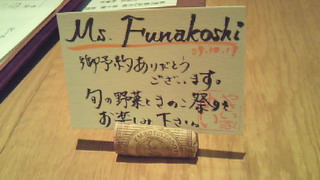 Ms. Funakoshi
09.10.17
御予約ありがとう
ございます。
旬の野菜ときのこ祭りを
お楽しみ下さい。